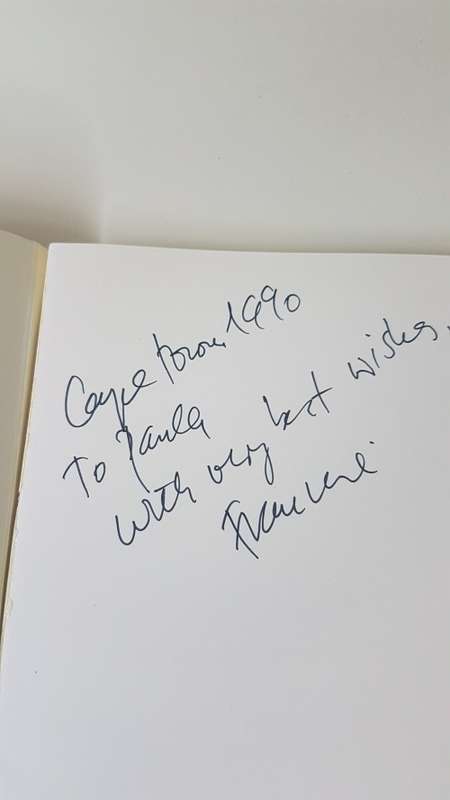 Cape Town 1990
To Paula
with very best wishes.